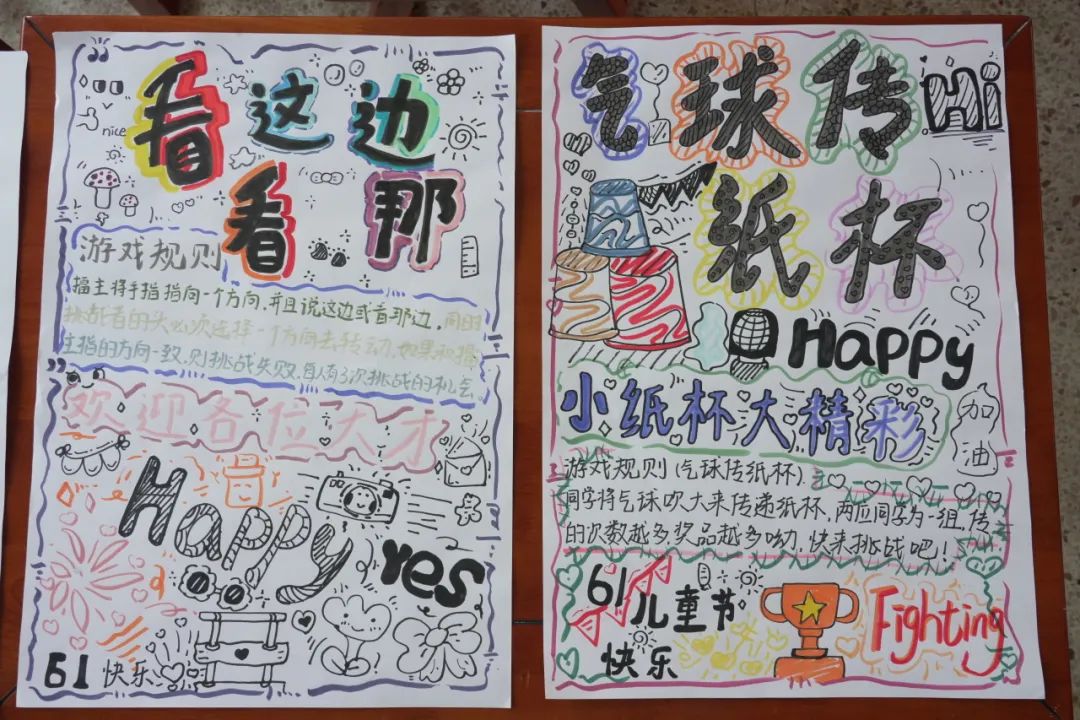 nice
看这边
看那
游戏规则
擂主将手指指向一个方向,并且说这边或看那边,同时
挑战者的头必次选择一个方向去转动,如果和擂
主指的方向一致,则挑战失败.每人有3次挑战的机会
欢迎各位大才
Happy
yes
61 快乐
气球传 Hi
纸杯
Happy
小纸杯大精彩
加油
游戏规则(气球传纸杯).
同学将气球吹大来传递纸杯,两位同学为一组,传
的次数越多奖品越多呦,快来挑战吧!
61儿童节
快乐
Fighting